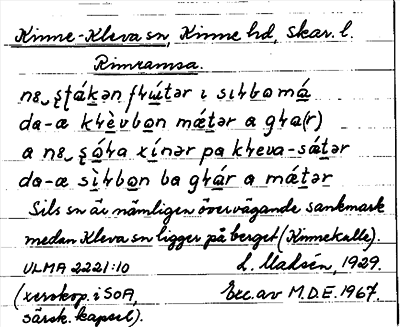 Kinne-Kleva sn, Kinne hd, Skar. l.
Rimramsa.
nɛ ʂtákən fʜútər ı sıʜbomá
da-æ kʜèvbon mǽtər a gʜa(r)
a nɛ ʂóʜa xínər pa kʜeva-sǽtər
da-æ sìʜbon ba gʜár a mátər
Sils sn är nämligen övervägande sankmark
medan Kleva sn ligger på berget (Kinnekulle).
ULMA 2221:10 L. Maksén, 1929.
(xerokop. i SOA, Exc. av M.D.E. 1967.
särsk. kapsel).